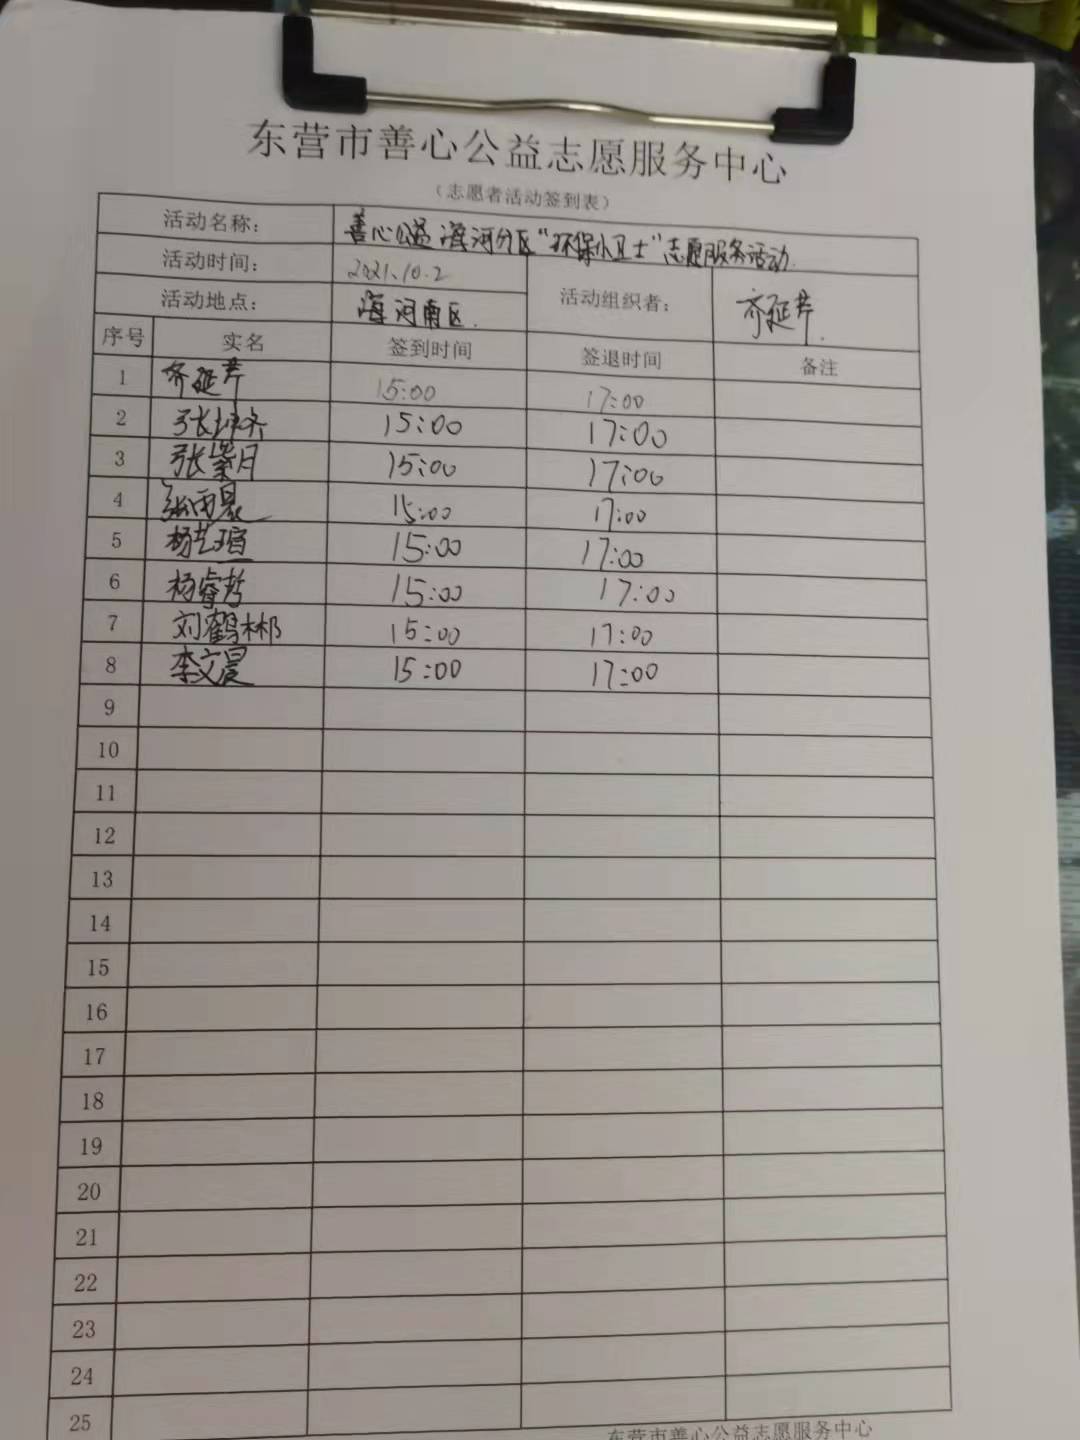 东营市善心公益志愿服务中心
（志愿者活动签到表）
活动名称： 善心公益海河分区“环保小卫士”志愿服务活动.
活动时间： 2021.10.2 活动组织者： 齐延芹.
活动地点： 海河南区.
序号 实名 签到时间 签退时间 备注
1 齐延芹 15:00 17:00
2 张坤齐 15:00 17:00
3 张紫月 15:00 17:00
4 张雨晨 15:00 17:00
5 杨艺瑄 15:00 17:00
6 杨睿哲 15:00 17:00
7 刘鹤彬 15:00 17:00
8 李文晨 15:00 17:00
9
10
11
12
13
14
15
16
17
18
19
20
21
22
23
24
25
东营市善心公益志愿服务中心